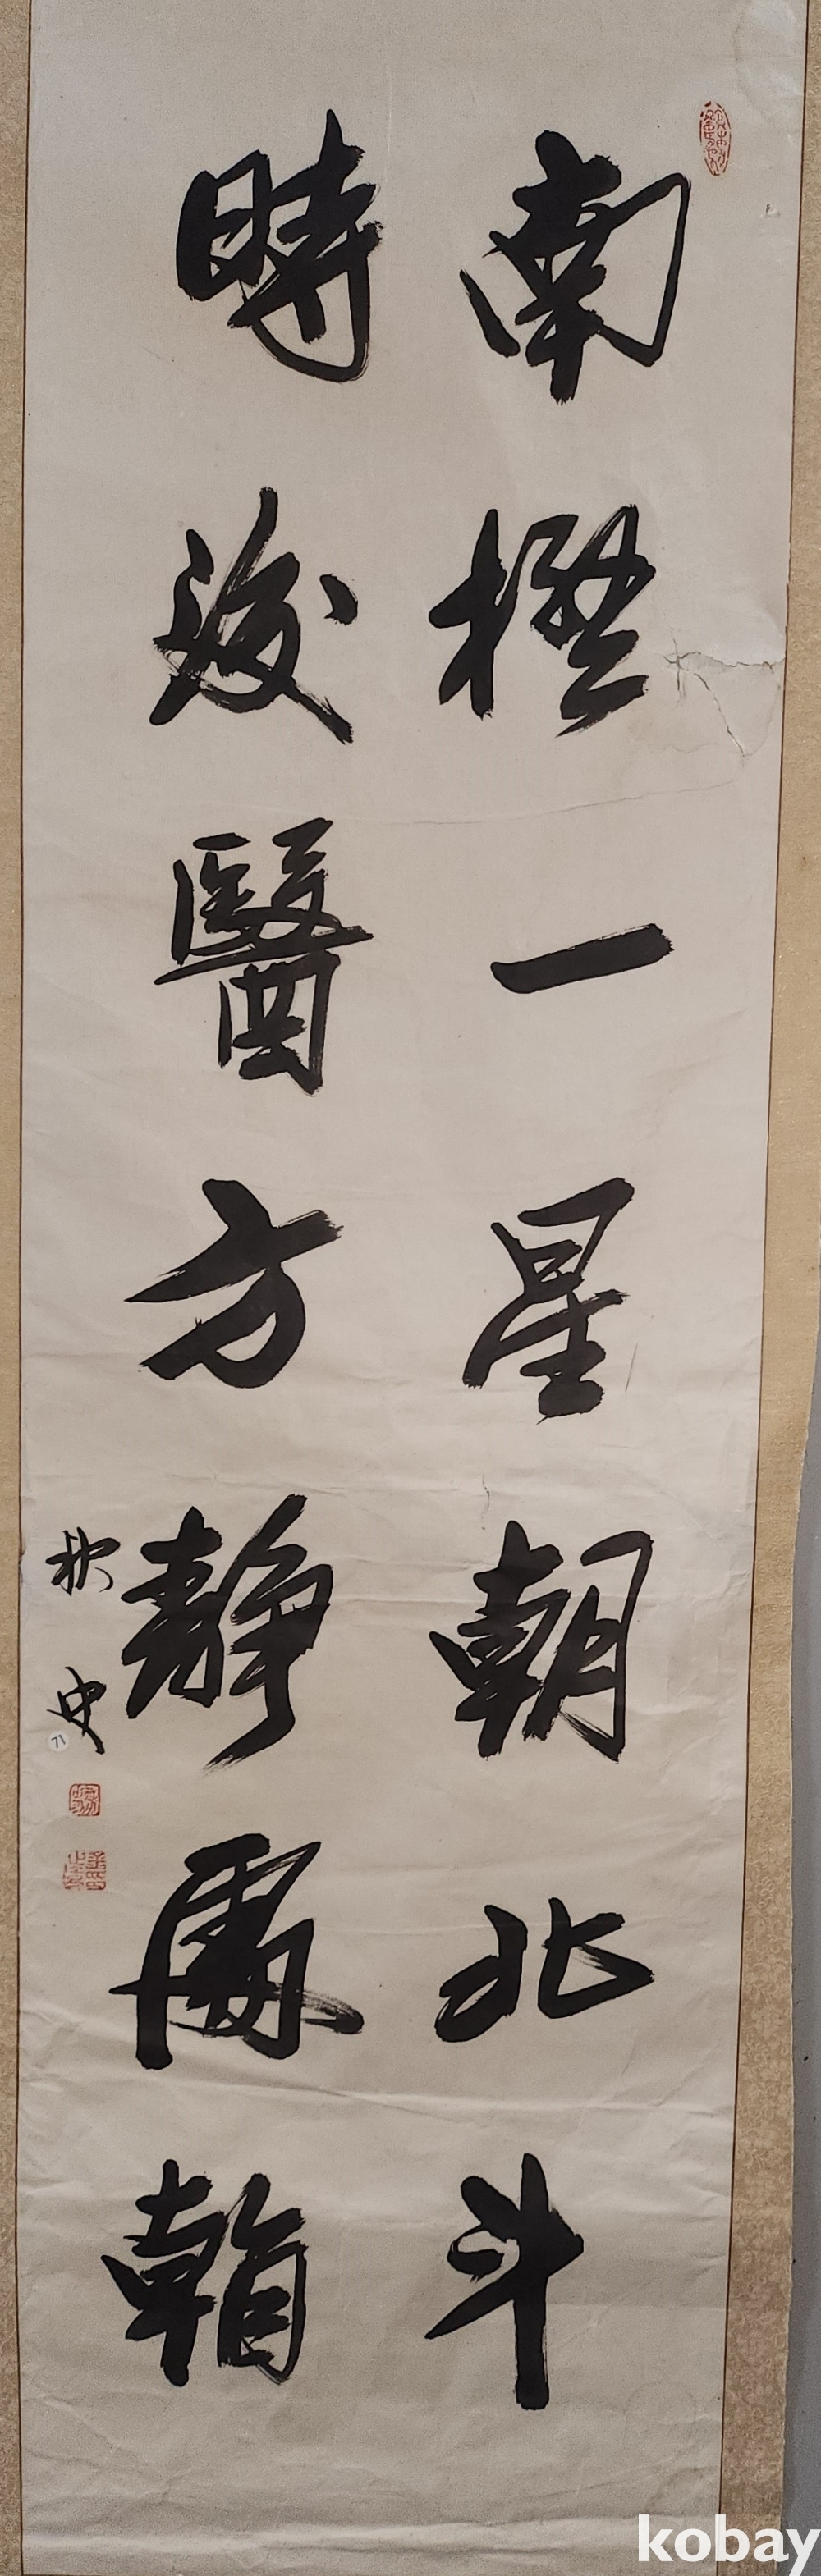 南極一星朝北斗
時後醫方靜處
秋史
71
kobay